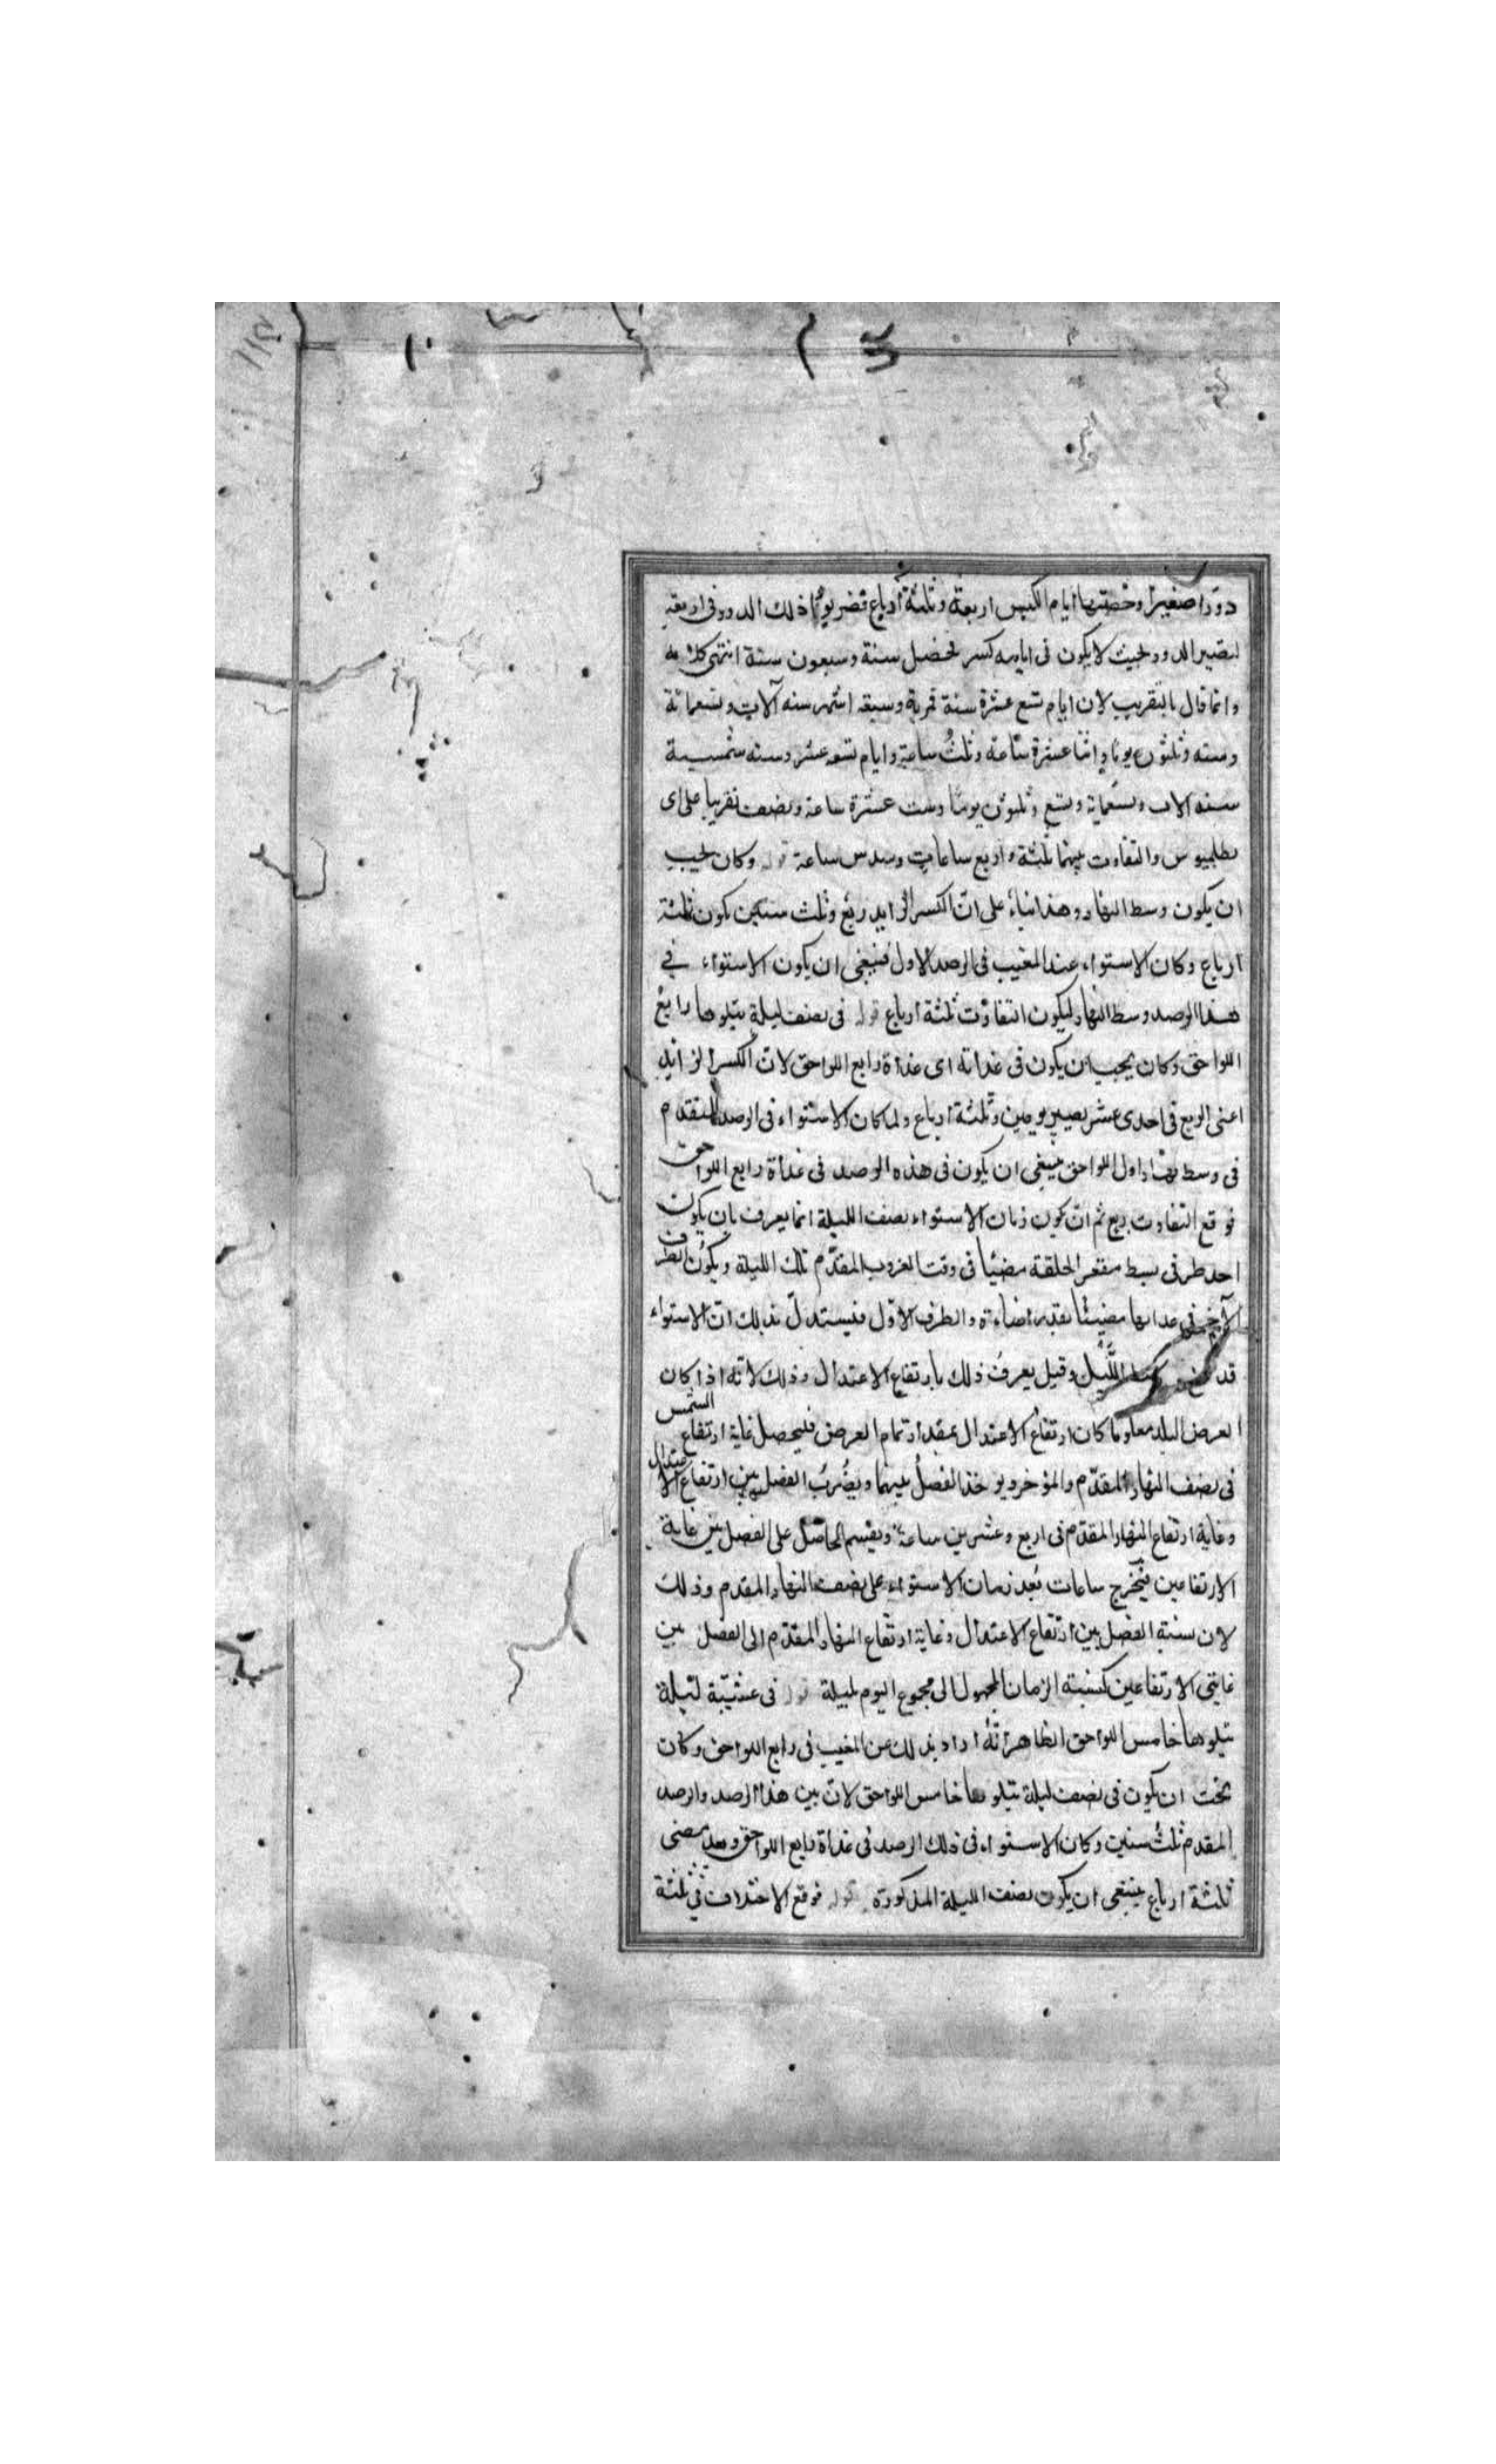 دورا صغيرا وحصتها ايام الكبس اربعة وثلثة ارباع فضربوا ذلك الدور فى اربعة
لتصير الدور بحيث لا يكون فى ايامه كسر فحصل ستة وسبعون سنة انتهى كلامه
وانما قال بالتقريب لان ايام تسع عشرة سنة قمرية وسبعة اشهر ستة آلاف وتسعمائة
وستة وثلثون يوما واثنا عشرة ساعة وثلث ساعة وايام تسعة عشر وسنه شمسية
ستة الاف وتسعماية وتسع وثلثون يوما وست عشرة ساعة ونصف تقريبا على راى
بطلميوس والتفاوت بينهما ثلثة واربع ساعات وسدس ساعة قوله وكان يجب
ان يكون وسط النهار وهذا بناء على ان الكسر الزايد ربع وثلث سنين يكون ثلثة
ارباع وكان الاستواء عند المغيب فى الرصد الاول فينبغى ان يكون الاستواء فى
هذا الرصد وسط النهار ليكون التفاوت ثلثة ارباع قوله فى نصف ليلة يتلوها رابع
اللواحق وكان يجب ان يكون فى غداته اى غداة رابع اللواحق لان الكسر الزايد
اعنى الربع فى احدى عشر يصير يومين وثلثة ارباع ولما كان الاستواء فى الرصد المتقدم
فى وسط نهار اول اللواحق ينبغى ان يكون فى هذه الرصد فى غداة رابع اللواحق
فوقع التفاوت بربع ثم ان كون زمان الاستواء نصف الليلة انما يعرف بان يكون
احد طرفى بسيط مقعر الحلقة مضيئا فى وقت الغروب المقدم تلك الليلة ويكون الطرف
الآخر فى غدائها مضيئا بقدر اضاءة والطرف الاول فيستدل بذلك ان الاستواء
قد الليل وقيل يعرف ذلك بارتفاع الاعتدال وذلك لانه اذا كان
العرض البلد معلوما كان ارتفاع الاعتدال بمقدار تمام العرض فليحصل غاية ارتفاع الشمس
فى نصف النهار المقدم والمؤخر ويوخذ الفصل بينهما ويضرب الفضل بين ارتفاع الاعتدال
وغاية ارتفاع النهار المقدم فى اربع وعشرين ساعة ويقسم الحاصل على الفصل بين غاية
الارتفاعين فيخرج ساعات بعد زمان الاستواء على نصف النهار المقدم وذلك
لان نسبة الفضل بين ارتفاع الاعتدال وغاية ارتفاع النهار المقدم الى الفضل بين
غايتى الارتفاعين كنسبة الزمان المجهول الى مجموع اليوم بليلة قوله فى عشيّة ليلة
يتلوها خامس اللواحق الظاهر انه اراد بذلك عن المغيب فى رابع اللواحق وكان
يجب ان يكون فى نصف ليلة يتلوها خامس اللواحق لان بين هذا الرصد والرصد
المقدم ثلث سنين وكان الاستواء فى ذلك الرصد فى غداة رابع اللواحق وبعد مضى
ثلثة ارباع ينبغى ان يكون نصف الليلة المذكورة قوله فوقع الاختلاف فى ثلثة